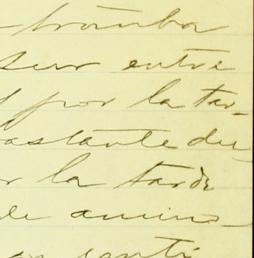 tromba
sur entre
por la tar-
astante du
r la tarde
de amino-
senti